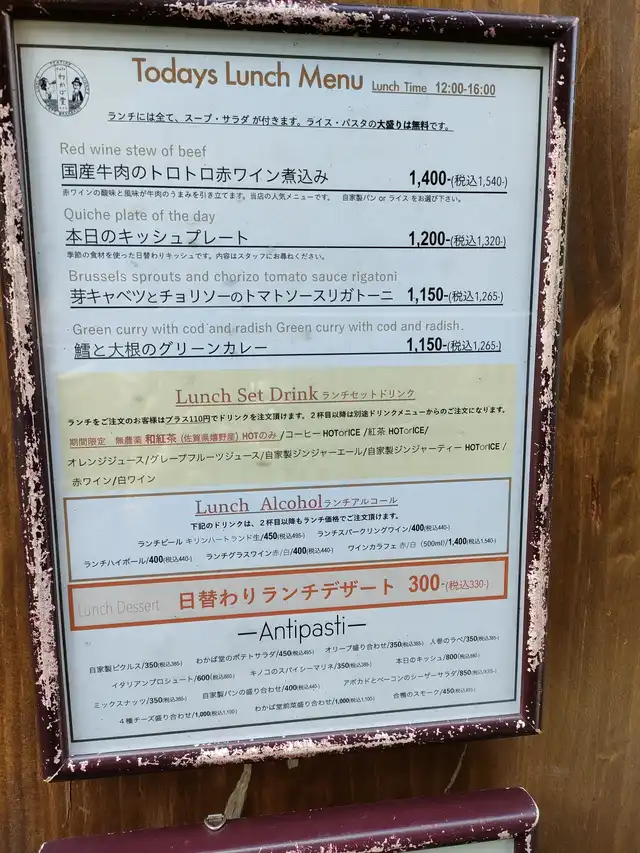 わかば堂
Todays Lunch Menu Lunch Time 12:00-16:00
ランチには全て、スープ・サラダ が付きます。ライス・パスタの大盛りは無料です。
Red wine stew of beef
国産牛肉のトロトロ赤ワイン煮込み 1,400-(税込1,540-)
赤ワインの酸味と風味が牛肉のうまみを引き立てます。当店の人気メニューです。 自家製パン or ライス をお選び下さい。
Quiche plate of the day
本日のキッシュプレート 1,200-(税込1,320-)
季節の食材を使った日替わりキッシュです。内容はスタッフにお尋ねください。
Brussels sprouts and chorizo tomato sauce rigatoni
芽キャベツとチョリソーのトマトソースリガトーニ 1,150-(税込1,265-)
Green curry with cod and radish Green curry with cod and radish.
鱈と大根のグリーンカレー 1,150-(税込1,265-)
Lunch Set Drink ランチセットドリンク
ランチをご注文のお客様はプラス110円でドリンクを注文頂けます。2杯目以降は別途ドリンクメニューからのご注文になります。
期間限定 無農薬 和紅茶 (佐賀県嬉野産) HOTのみ /コーヒー HOTorICE /紅茶 HOTorICE/
オレンジジュース/グレープフルーツジュース/自家製ジンジャーエール/自家製ジンジャーティー HOTorICE /
赤ワイン/白ワイン
Lunch Alcohol ランチアルコール
下記のドリンクは、2杯目以降もランチ価格でご注文頂けます。
ランチビール キリンハートランド生/450(税込495-) ランチスパークリングワイン/400(税込440-)
ランチハイボール/400(税込440-) ランチグラスワイン赤/白/400(税込440-) ワインカラフェ 赤/白 (500ml)/1,400(税込1,540-)
Lunch Dessert 日替わりランチデザート 300-(税込330-)
—Antipasti—
自家製ピクルス/350(税込385-) わかば堂のポテトサラダ/450(税込495-) オリーブ盛り合わせ/350(税込385-) 人参のラペ/350(税込385-)
イタリアンプロシュート/600(税込660-) キノコのスパイシーマリネ/350(税込385-) 本日のキッシュ/800(税込880-)
ミックスナッツ/350(税込385-) 自家製パンの盛り合わせ/400(税込440-) アボカドとベーコンのシーザーサラダ/850(税込935-)
4種チーズ盛り合わせ/1,000(税込1,100-) わかば堂前菜盛り合わせ/1,000(税込1,100-) 合鴨のスモーク/450(税込495-)